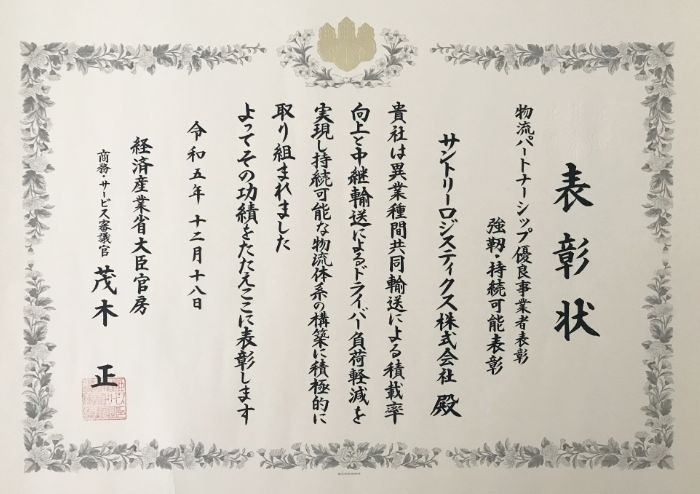 表彰状
物流パートナーシップ優良事業者表彰
強靭・持続可能表彰
サントリーロジスティクス株式会社 殿
貴社は異業種間共同輸送による積載率
向上と中継輸送によるドライバー負荷軽減を
実現し持続可能な物流体系の構築に積極的に
取り組まれました
よってその功績をたたえここに表彰します
令和五年 十二月十八日
経済産業省大臣官房
商務・サービス審議官 茂木 正